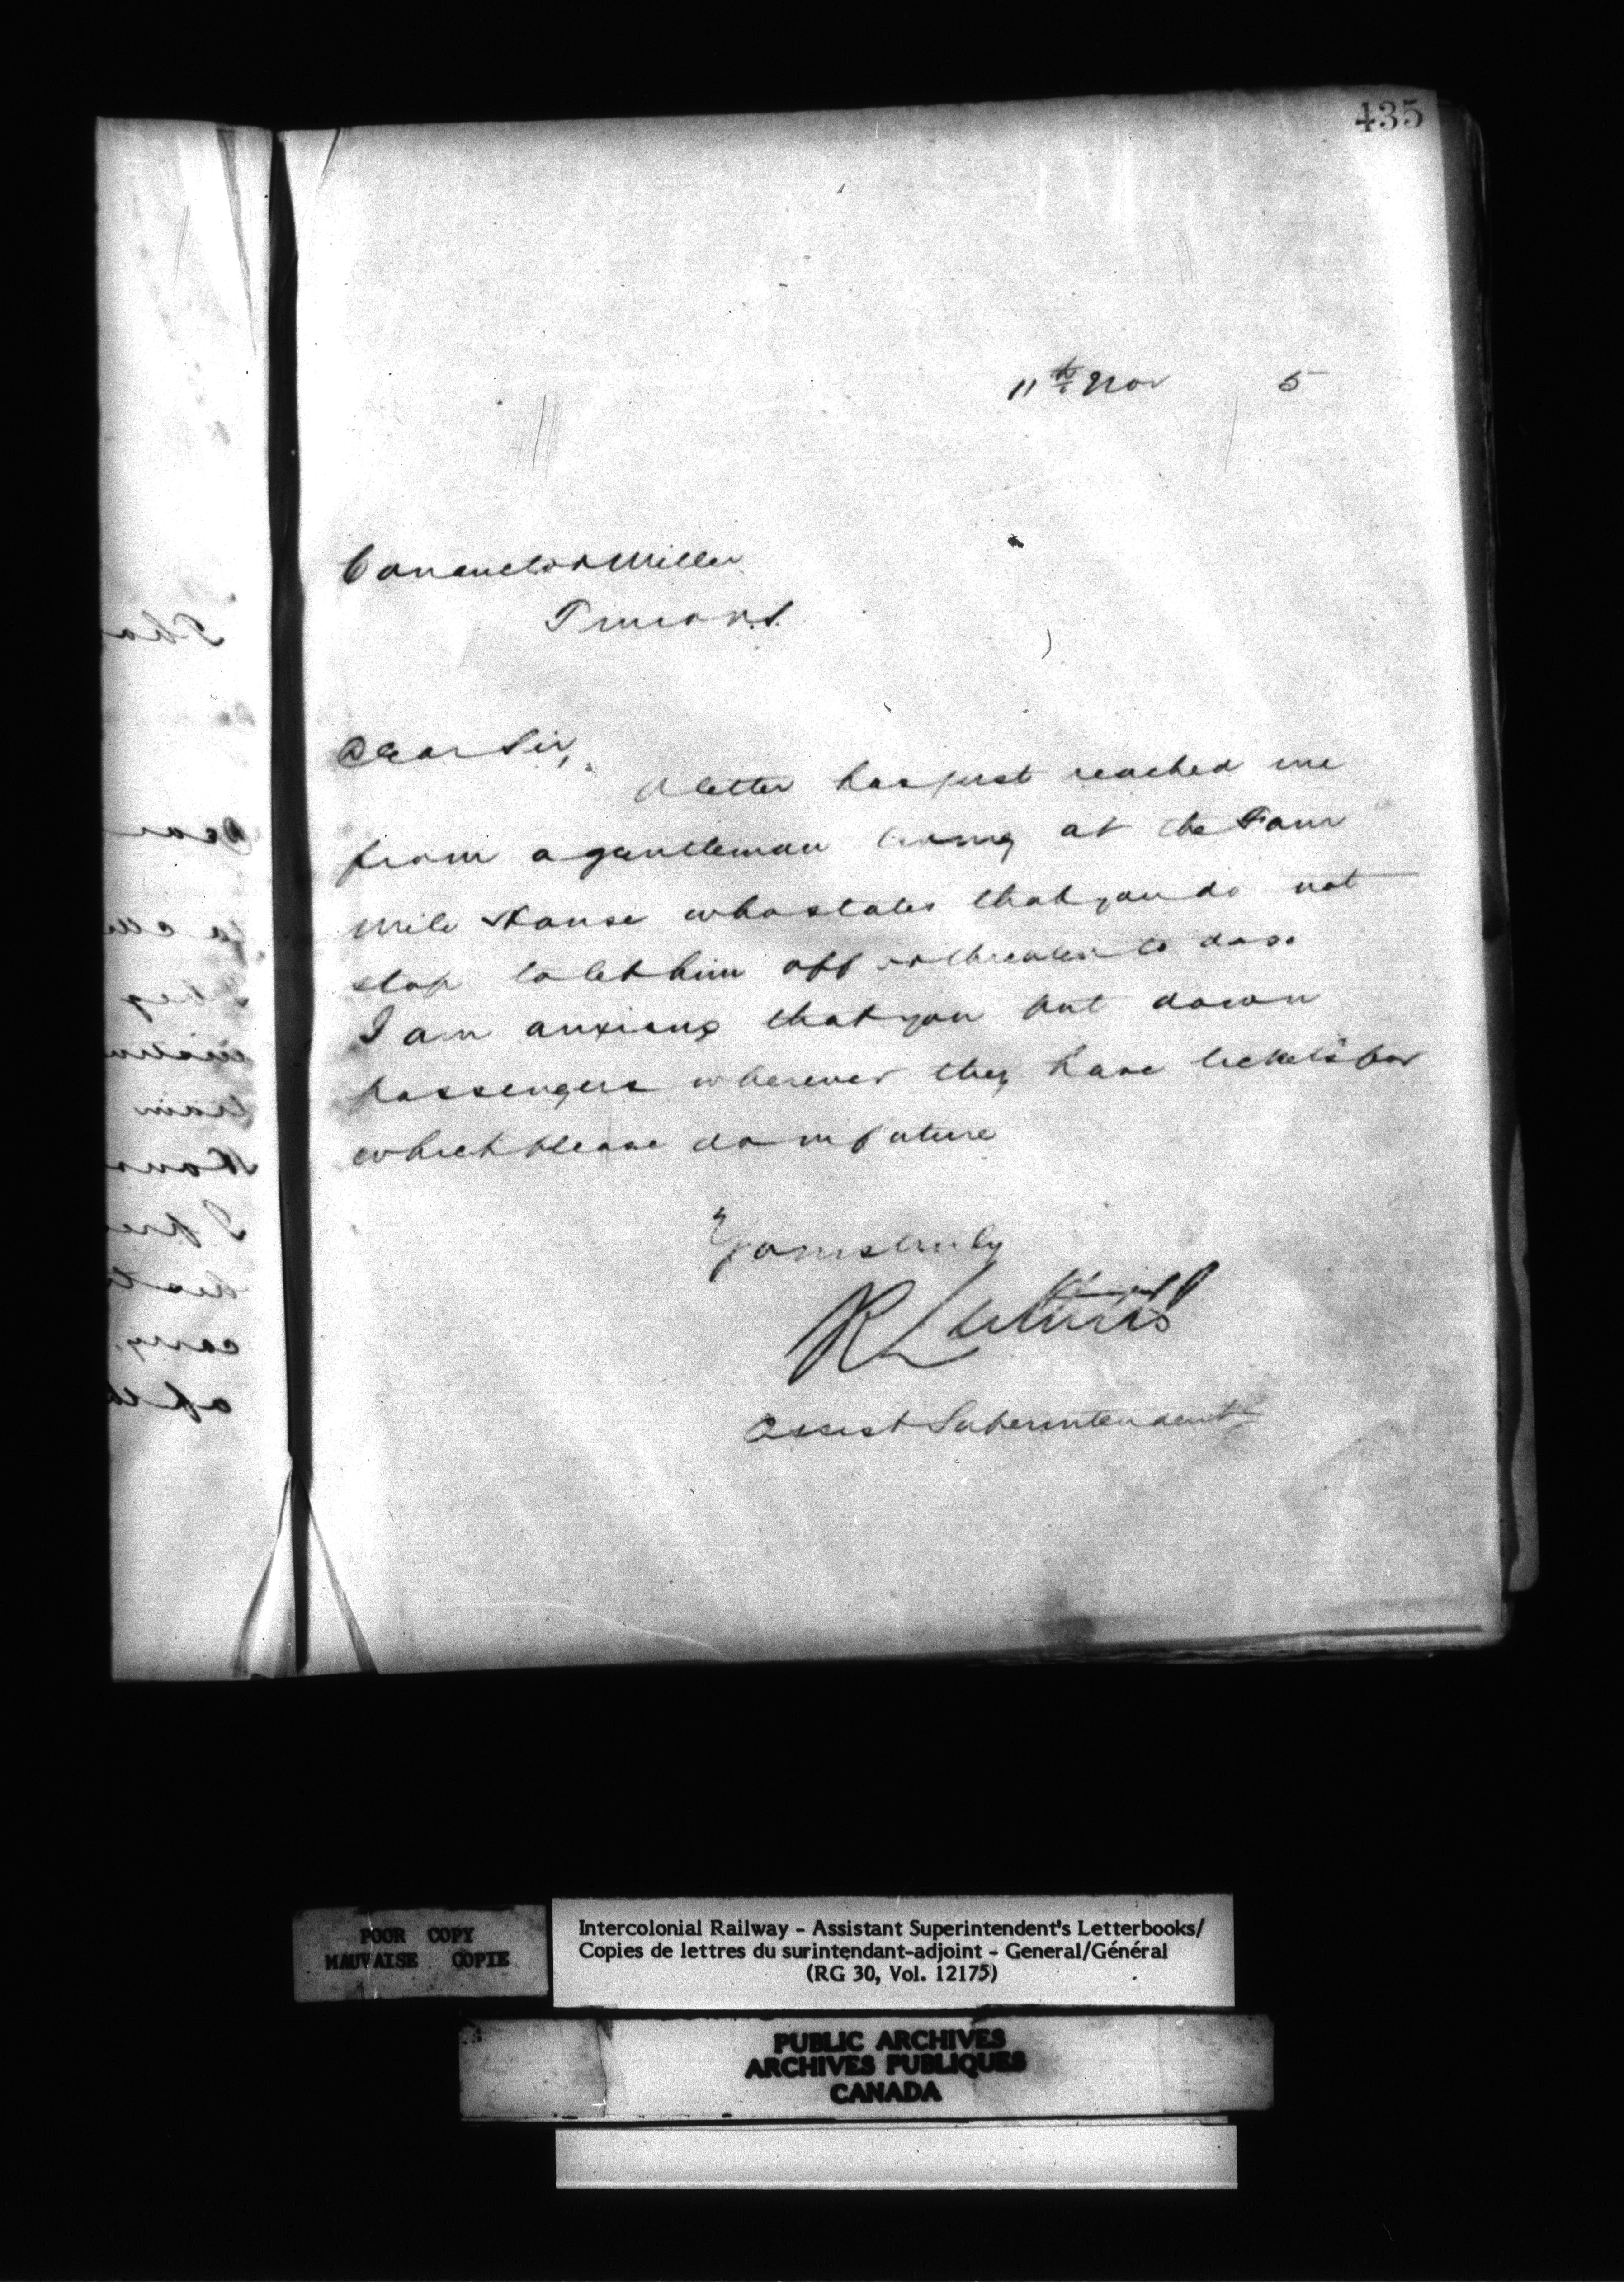 435
11th Nov 5
Conductor Miller
Truro N.S.
Dear Sir,
A letter has just reached me
from a gentleman living at the Four
Mile House who states that you do not
stop to let him off or threaten to do so
I am anxious that you put down
passengers wherever they have tickets for
which please do in future
Yours truly
R Luttrell
Assist Superintendent
Thos
Dear
POOR COPY
MAUVAISE COPIE
Intercolonial Railway - Assistant Superintendent's Letterbooks/
Copies de lettres du surintendant-adjoint - General/Général
(RG 30, Vol. 12175)
PUBLIC ARCHIVES
ARCHIVES PUBLIQUES
CANADA